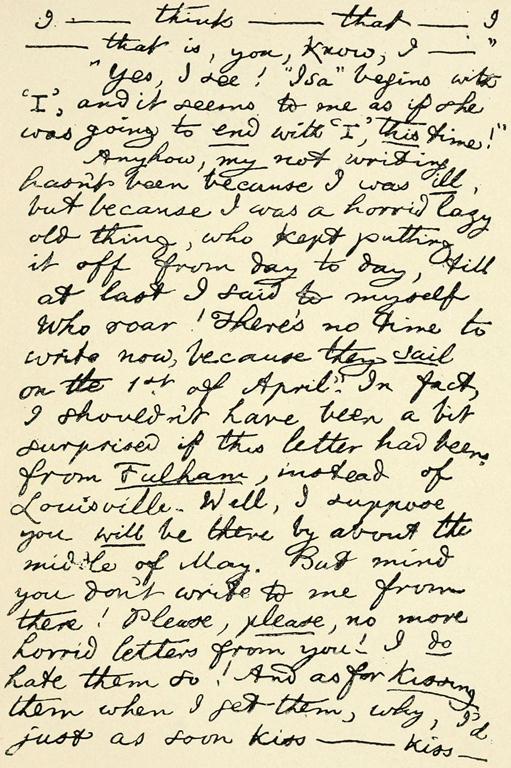 I —— think —— that —— I
—— that is, you, know, I —— "
"Yes, I see! "Isa" begins with
'I', and it seems to me as if she
was going to end with 'I', this time!"
Anyhow, my not writing
hasn't been because I was ill,
but because I was a horrid lazy
old thing, who kept putting
it off from day to day, till
at last I said to myself
Who roar! There's no time to
write now, because they sail
on the 1st of April." In fact,
I shouldn't have been a bit
surprised if this letter had been
from Fulham, instead of
Louisville. Well, I suppose
you will be there by about the
middle of May. But mind
you don't write to me from
there! Please, please, no more
horrid letters from you! I do
hate them so! And as for kissing
them when I get them, why, I'd
just as soon kiss —— kiss —